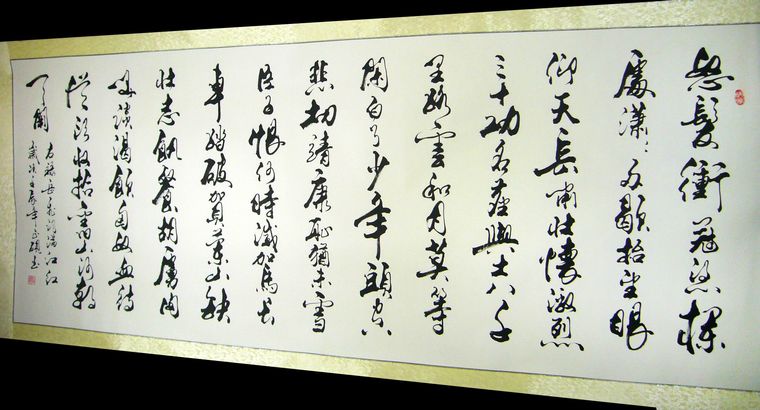 怒髮衝冠憑欄
處瀟瀟雨歇抬望眼
仰天長嘯壯懷激烈
三十功名塵與土八千
里路雲和月莫等
閑白了少年頭空
悲切靖康恥猶未雪
臣子恨何時滅駕長
車踏破賀蘭山缺
壯志飢餐胡虜肉
笑談渴飲匈奴血待
從頭收拾舊山河朝
天闕
右錄岳飛詞滿江紅
歲次年書